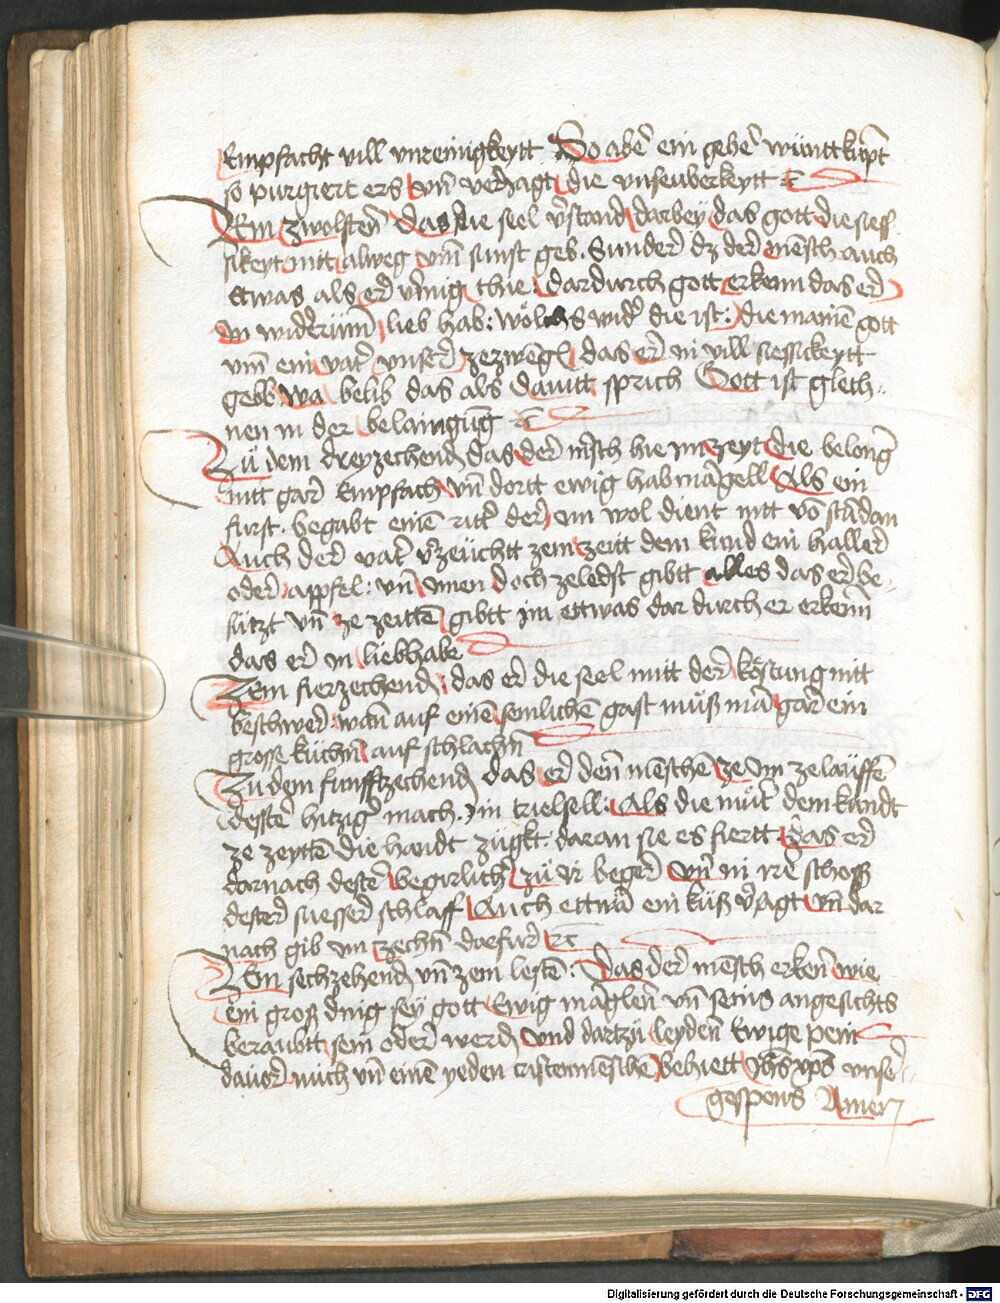 Empfacht vill vnreinigkeytt So aber ein geher wintt kupt
so purgiert ers vnd veriagt die vnseuberkeytt ⁊c
Zem zwolften Das die seel verstand darbey das gott die siess
sikeyt nitt alweg vm sunst geb. Sunder dz der mensch auch
Etwas als er vermig thue dardurch gott erkenn das er
in widerum lieb hab: die ist: die mainen gott
vm ein vater vnser zezwengen das er in vill siessickeytt
gebb wa belib das als dauitt sprich Gott ist
nen in der ⁊c
Zu dem dreyzechenden das der mensch hie im zeyt die belong
nitt gar Empfach vnd dortt ewig hab mangell Als ein
furst. begabt einen ritter der im wol dient nitt von stundan
Auch der vater zem zeitt dem kind ein haller
oder appfel: vnd imen doch zeledst gibtt alles das er be
sitzt vnd ze zeitten gibtt im ettwas dar durch er erkenn
das er in liebhabe
Zem fierzechenden: das er die seel mitt der kostung nitt
beschwer: wan auf einen semlichen gast muss man gar ein
grosse kuchin auf schlachen
Zu dem funfftzechenden das er den menschen ze im zelauffen
dester hitziger mach. Als die muter dem kindt
ze zeytten die handt zugkt daran sie es fiertt: das er
darnach dester begirlicher zu ir beger vnd in ire schoss
dester suesser schlaff Auch ettwan ein kuss versagt vnd dar
nach gib im zechen darfur ⁊c
Zem sechzehenden vnd zem lesten: Das der mensch erken wie
ein gross ding sey gott Ewig manglen vnd seins angesichts
beraubtt sein oder werden vnd dartzu leyden Ewige pein
dauor mich vnd einen yeden cristenmenschen behiett ihs xps vnser
gespons Amen